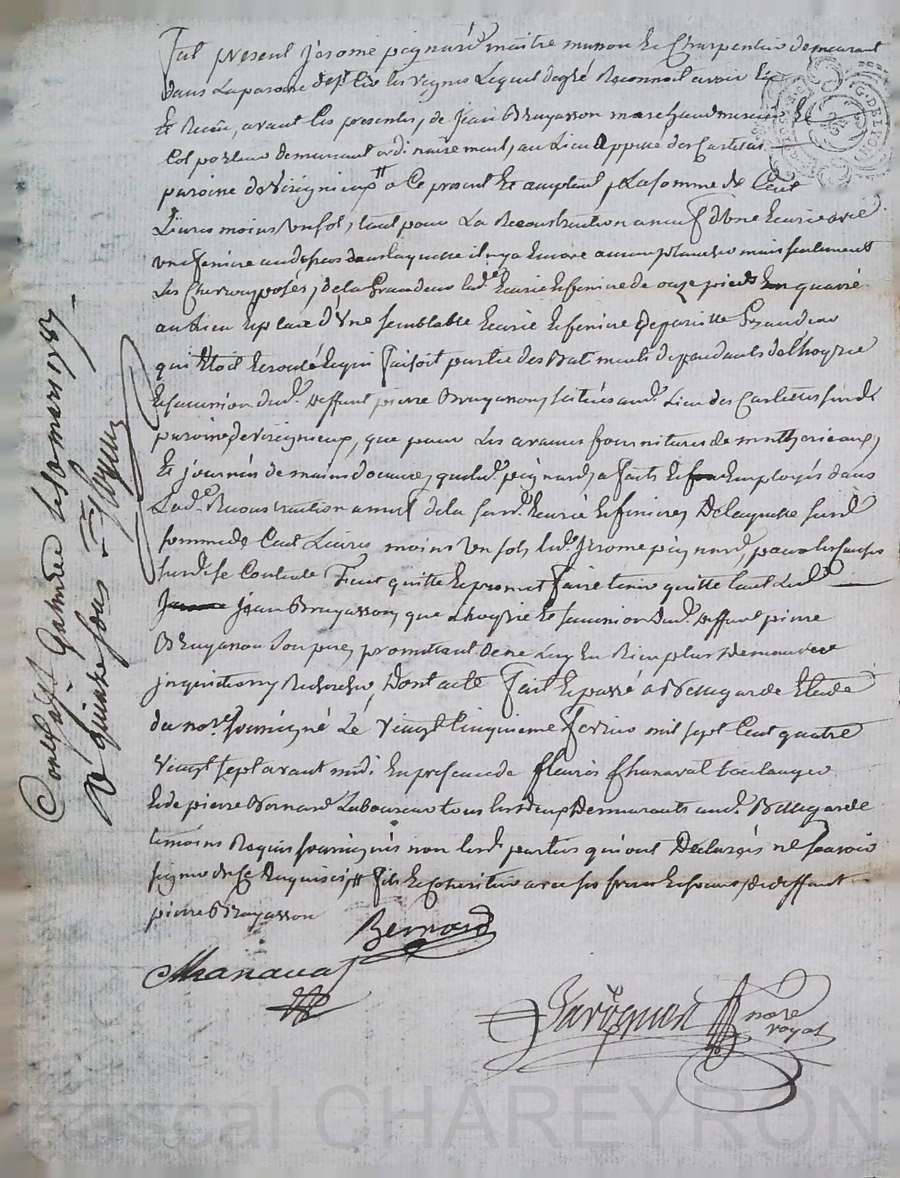 Fut present Jérome peignard maitre masson Et Charpentier demeurant
dans La paroisse de st Cir les vignes Lequel degré Reconnoit avoir Eu
Et Recû, avant Ces presentes, de Jean Bruyasson marchand mercier Et
Colporteur demeurant ordinairement, au Lieu appellé des Carteras
paroisse de Virigneux, a Ce present Et acceptant La somme de Cent
Livres moins Un sol, tant pour La Reconstruction a neuf d'Une Ecurie avec
Une feniere au dessus dans laquelle il n'y a Encore aucun plancher mais seulement
Les Chevrons posés, de la Grandeur lad. Ecurie Et feniere de onze pieds En quarré
au Lieu Et place d'Une semblable Ecurie Et feniere De pareille Grandeur
qui Etoit Ecroulé Et qui faisoit partie des Batiments dependants de l'hoyrie
Et succession dud. deffunt pierre Bruyasson, scitués aud. Lieu des Carteras susd.
paroisse de Virigneux, que pour Les avances fournitures de matheriaux,
Et journées de mains d'oeuvre, que led. peignard, a faits Et Employés dans
Lad. Reconstruction a neuf de la susd. Ecurie Et feniere, De laquelle susd.
somme de Cent Livres moins Un sol, led. Jérome peignard, pour les causes
susd. se Contente Tient quitte Et promet faire tenir quitte tant led.
Jean Bruyasson, que L'hoyrie Et succession dud. deffunt pierre
Bruyasson son pere, promettant de ne Luy En Rien plus Demander
inquietter ny Rechercher, Dont acte Fait Et passé a Bellegarde Etude
du nore. soussigné Le Vingt Cinquieme fevrier mil sept Cent quatre
Vingt sept avant midi En presence de fleuris Chanavat boulanger
Et de pierre Bernard Laboureur tous Les deux Demeurants aud. Bellegarde
temoins Requis soussignés non Lesd. parties qui ont Declarés ne sçavoir
signer de ce Enquises, fils Et Coheritier avec ses freres Et soeurs, de deffunt
pierre Bruyasson
Bernard
Chanavat
nore
royal
Conlé a St Galmier Le 10 mars 1787
R quinze sous